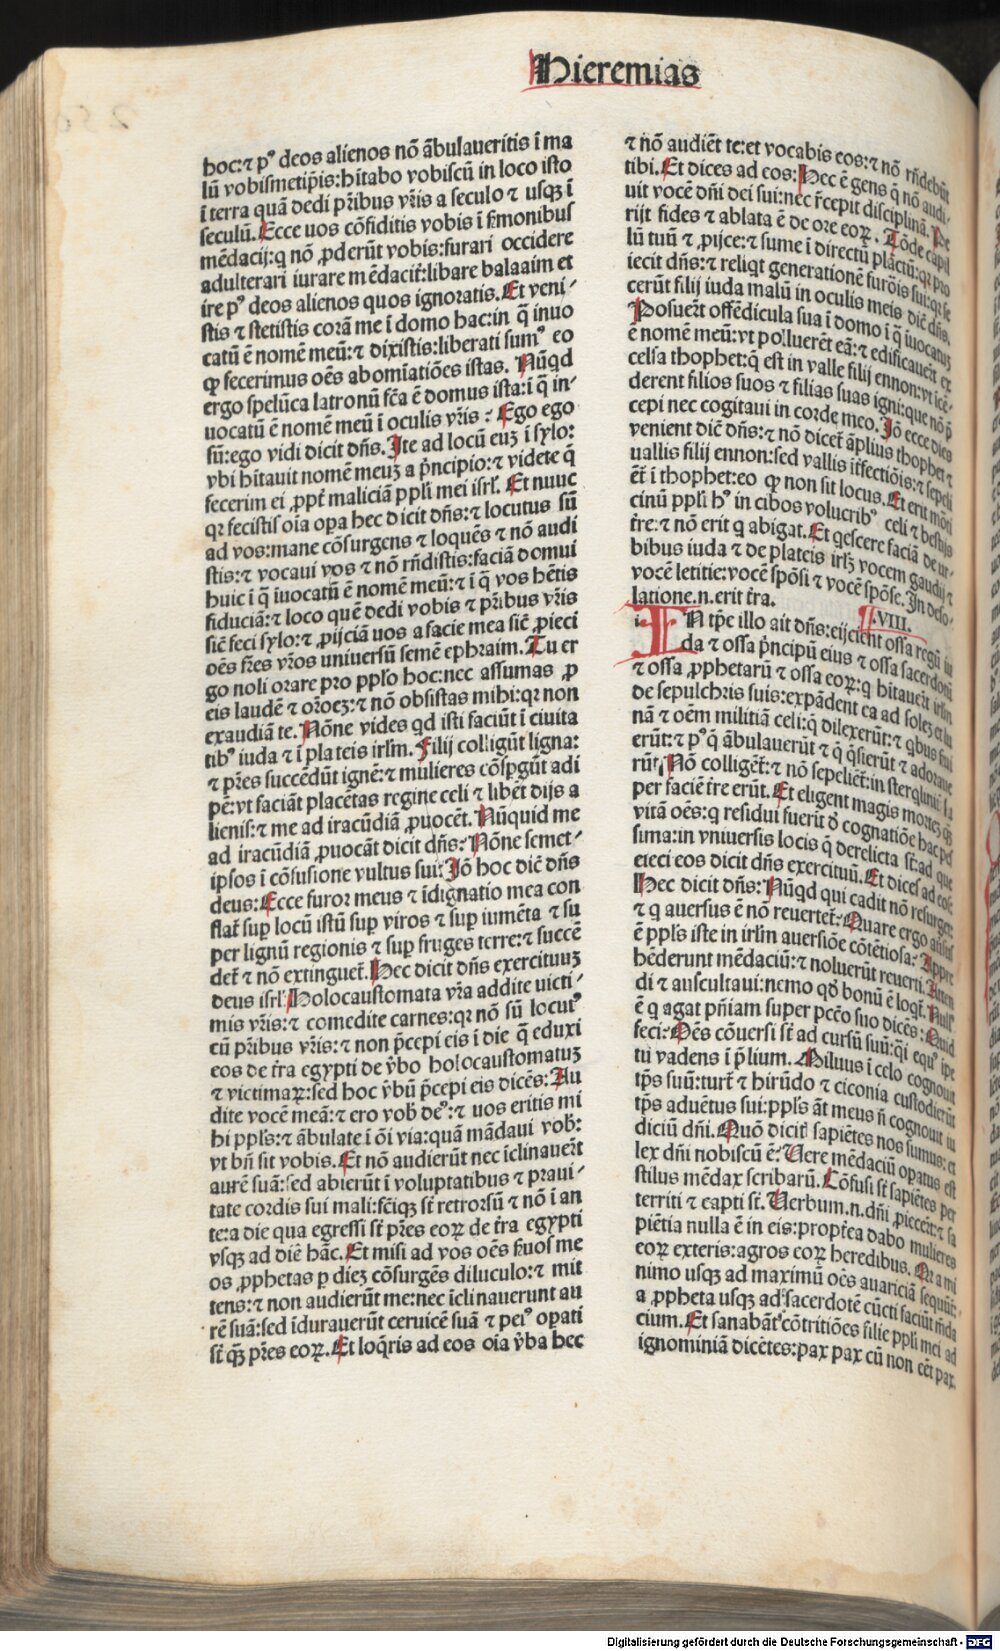 Hieremias
hoc:⁊ pꝰ deos alienos nō ãbulaueritis ī ma
lũ vobismetip̃is:hĩtabo vobiscũ in loco isto
ī terra quã dedi pr̃ibus vr̃is a seculo ⁊ usqꝫ ī
seculũ. Ecce uos cõfiditis vobis ī ẜmonibus
mẽdacij:q nō ꝓderũt vobis:furari occidere
adulterari iurare mẽdacit̃:libare balaaim et
ire pꝰ deos alienos quos ignoratis. Et veni⸗
stis ⁊ stetistis corã me ī domo hac:in q̃ inuo
catũ ē nomẽ meũ:⁊ dixistis:liberati sumꝰ eo
ꝙ fecerimus oẽs abomĩatiões istas. Nũqd
ergo spelũca latronũ fc̃a ē domus ista:ī q̃ in⸗
uocatũ ē nomẽ meũ ī oculis vr̃is? Ego ego
sũ:ego vidi dicit dñs. Ite ad locũ euꝫ ī sylo:
vbi hĩtauit nomẽ meuꝫ a p̃ncipio:⁊ videte q̃
fecerim ei ꝓpt̃ maliciã ppl̃i mei isrl̃. Et nunc
qꝛ fecistis oĩa oꝑa hec dicit dñs:⁊ locutus sũ
ad vos:mane cõsurgens ⁊ loquẽs ⁊ nõ audi
stis:⁊ vocaui vos ⁊ nõ rñdistis:faciã domui
huic ī q̃ iuocatũ ē nomẽ meũ:⁊ ī q̃ vos hẽtis
fiduciã:⁊ loco quẽ dedi vobis ⁊ pr̃ibus vr̃is
sic̃ feci sylo:⁊ ꝓijciã uos a facie mea sic̃ ꝓieci
oẽs fr̃es vr̃os uniuersũ semẽ ephraim. Tu er
go noli orare pro ppl̃o hoc:nec assumas ꝓ
eis laudẽ ⁊ oroeꝫ:⁊ nõ obsistas mihi:qꝛ non
exaudiã te. Nõne vides qd isti faciũt ī ciuita
tibꝰ iuda ⁊ ī plateis irl̃m. Filij colligũt ligna:
⁊ pr̃es succẽdũt ignẽ:⁊ mulieres cõspgũt adi
pẽ:vt faciãt placẽtas regine celi ⁊ libẽt dijs a
lienis:⁊ me ad iracũdiã ꝓuocẽt. Nũquid me
ad iracũdiã ꝓuocãt dicit dñs? Nõne semet⸗
ipsos ī cõfusione vultus sui? Iõ hoc dic̃ dñs
deus: Ecce furor meus ⁊ ĩdignatio mea con
flat̃ sup locũ istũ sup viros ⁊ sup iumẽta ⁊ su
per lignũ regionis ⁊ sup fruges terre:⁊ succẽ
det̃ ⁊ nõ extinguet̃. Hec dicit dñs exercituuꝫ
deus isrl̃. Holocaustomata vr̃a addite uicti⸗
mis vr̃is:⁊ comedite carnes:qꝛ nõ sũ locutꝰ
cũ pr̃ibus vr̃is:⁊ non p̃cepi eis ī die q̃ eduxi
eos de tr̃a egypti de v̉bo holocaustomatuꝫ
⁊ victimaꝝ:sed hoc v̉bũ p̃cepi eis dicẽs: Au
dite vocẽ meã:⁊ ero vob̃ deꝰ:⁊ uos eritis mi
hi ppl̃s:⁊ ãbulate ī õi via:quã mãdaui vob̃:
vt bñ sit vobis. Et nõ audierũt nec ĩclinauer̃t
aurẽ suã:sed abierũt ī voluptatibus ⁊ praui⸗
tate cordis sui mali:fc̃iqꝫ st̃ retrorsũ ⁊ nõ ī an
te:a die qua egressi st̃ pr̃es eoꝝ de tr̃a egypti
vsqꝫ ad diẽ hãc. Et misi ad vos oẽs ẜuos me
os ꝓphetas ꝑ dieꝫ cõsurgẽs diluculo:⁊ mit
tens:⁊ non audierũt me:nec ĩclinauerunt au
rẽ suã:sed ĩdurauerũt ceruicẽ suã ⁊ peiꝰ oꝑati
st̃ qꝫ pr̃es eoꝝ. Et loq̃ris ad eos oĩa v̉ba hec
⁊ nõ audiẽt te:et vocabis eos:⁊ nõ rñdebũt
tibi. Et dices ad eos: Hec ē gens q̃ nõ audi⸗
uit vocẽ dñi dei sui:nec r̃cepit disciplinã. Pe
rijt fides ⁊ ablata ē de ore eoꝝ. Tõde capil
lũ tuũ ⁊ ꝓijce:⁊ sume ī directũ plãctũ:qꝛ pro
iecit dñs:⁊ reliqt generationẽ furõis sui:qꝛ fe
cerũt filij iuda malũ in oculis meis dic̃ dñs.
Posuer̃t offẽdicula sua ī domo ī q̃ iuocatuꝫ
ē nomẽ meũ:vt polluerẽt eã:⁊ edificauer̃t ex
celsa thophet:q̃ est in valle filij ennon:vt icẽ⸗
derent filios suos ⁊ filias suas igni:que nõ p̃
cepi nec cogitaui in corde meo. Iõ ecce dies
venient dic̃ dñs:⁊ nõ dicet̃ ãplius thophet ⁊
uallis filij ennon:sed vallis ĩt̃fectiõis:⁊ sepeli
ẽt̃ ī thophet:eo ꝙ non sit locus. Et erit morti
cinũ ppl̃i hꝰ in cibos volucribꝰ celi ⁊ bestijs
tr̃e:⁊ nõ erit q abigat. Et qescere faciã de ur⸗
bibus iuda ⁊ de plateis irl̃ꝫ vocem gaudij ⁊
vocẽ letitie:vocẽ spõsi ⁊ vocẽ spõse. In deso⸗
latione.n.erit tr̃a. VIII.
IN tp̃e illo ait dñs:eijcient ossa regũ iu
da ⁊ ossa p̃ncipũ eius ⁊ ossa sacerdotũ
⁊ ossa ꝓphetarũ ⁊ ossa eoꝝ:q hĩtauer̃t irl̃m
de sepulchris suis:expãdent ea ad solez et lu
nã ⁊ oẽm militiã celi:q̃ dilexerũt:⁊ qbus ẜui
erũt:⁊ pꝰ q̃ ãbulauerũt ⁊ q̃ q̃sierũt ⁊ adoraue
rũt. Nõ colligẽt̃:⁊ nõ sepeliẽt̃:in sterquiniũ sꝑ
per faciẽ tr̃e erũt. Et eligent magis mortẽ q̃ꝫ
vitã oẽs:q residui fuerĩt ð cognatiõe hac pes
sima:in vniuersis locis q̃ derelicta st̃:ad que
eieci eos dicit dñs exercituũ. Et dices ad eos:
Hec dicit dñs: Nũqd qui cadit nõ resurget:
⁊ q auersus ē nõ reuertet̃? Quare ergo auersus
ē ppl̃s iste in irl̃m auersiõe cõtẽtiosa? Appre
hẽderunt mẽdaciũ:⁊ noluerũt reuerti. Atten
di ⁊ auscultaui:nemo qð bonũ ē loqt̃. Nullꝰ
ē q agat pñiam super pctõ suo dicẽs: Quid
feci? Oẽs cõuersi st̃ ad cursũ suũ:q̃i equꝰ ipe
tu vadens ī p̃lium. Miluus ī celo cognouit
tp̃s suũ:turt̃ ⁊ hirũdo ⁊ ciconia custodierũt
tp̃s aduẽtus sui:ppl̃s ãt meus ñ cognouit iu
diciũ dñi. Quõ dicit̃ sapiẽtes nos sumus:et
lex dñi nobiscũ ē? Uere mẽdaciũ opatus est
stilus mẽdax scribarũ. Cõfusi st̃ sapiẽtes per
territi ⁊ capti st̃. Uerbum.n.dñi ꝓiecer̃t:⁊ sa
piẽtia nulla ē in eis:propt̃ea dabo mulieres
eoꝝ exteris:agros eoꝝ heredibus. Qꝛ a mi
nimo usqꝫ ad maximũ oẽs auariciã sequũt̃:
a ꝓpheta usqꝫ ad sacerdotẽ cũcti faciũt mẽda
cium. Et sanabãt cõtritiões filie ppl̃i mei ad
ignominiã dicẽtes:pax pax cũ non eẽt pax.
Digitalisierung gefördert durch die Deutsche Forschungsgemeinschaft - DFG